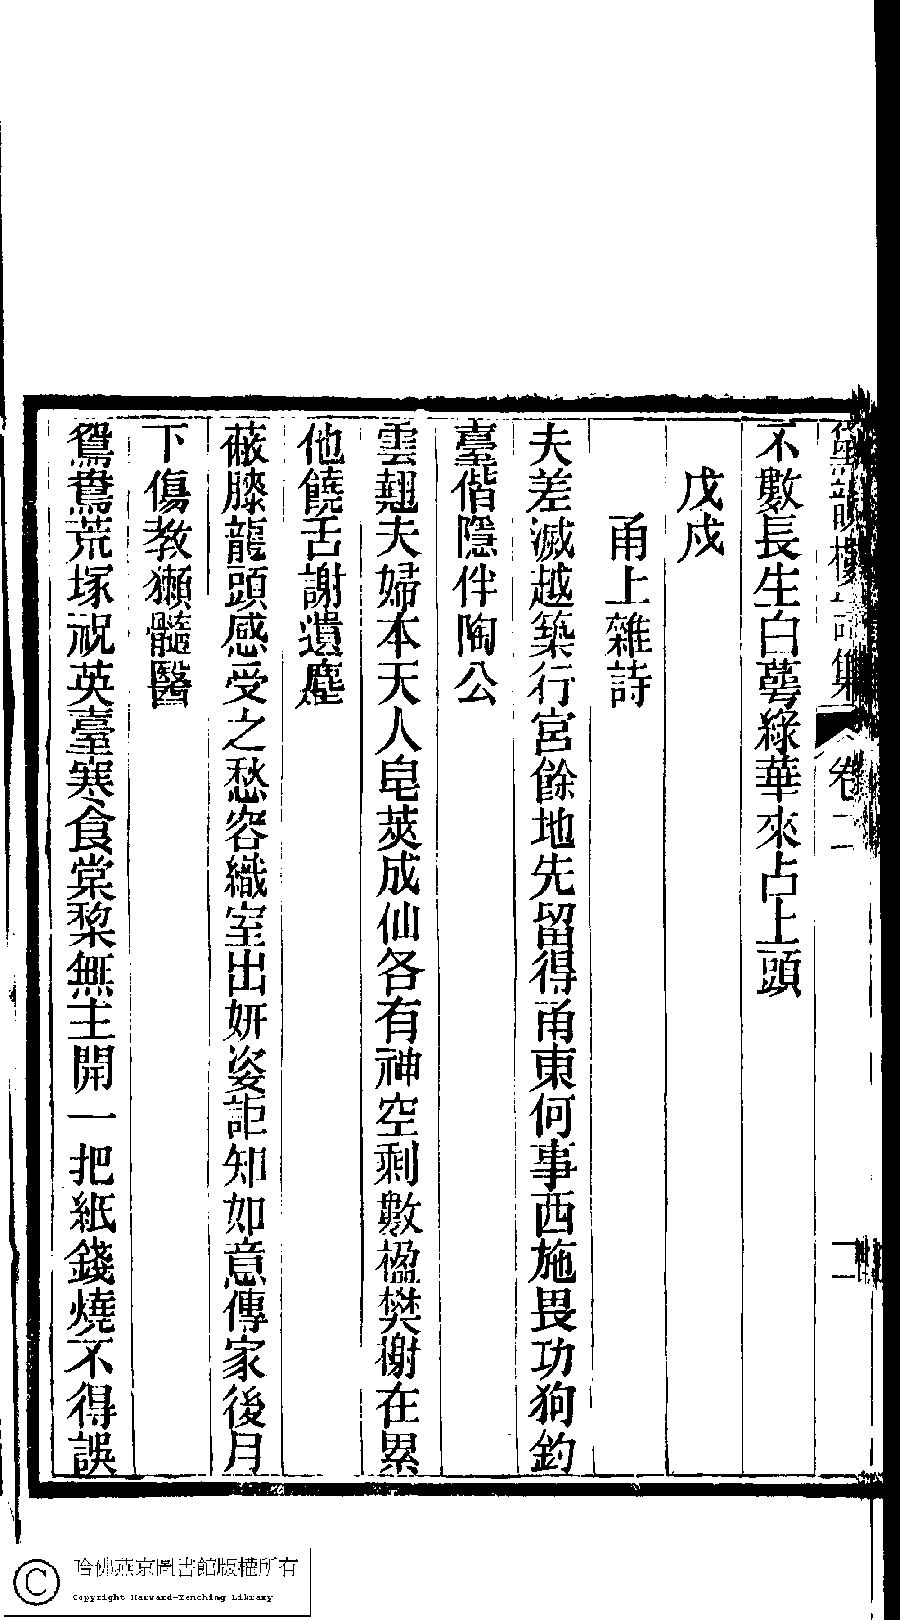 不數長生白萼綠華來占上頭
戊戌
甬上雜詩
夫差滅越築行宮餘地先留得甬東何事西施畏功狗釣
臺偕隱伴陶公
雲翹夫婦本天人皂莢成仙各有神空剩數楹樊榭在累
他饒舌謝遺塵
蔽膝龍頭感受之愁容織室出妍姿詎知如意傳家後月
下傷教獺髓醫
鴛鴦荒塚祝英臺寒食棠棃無主開一把紙錢燒不得誤
集
卷二
二
哈佛燕京圖書館版權所有
Copyright Harvard-Yenching Library